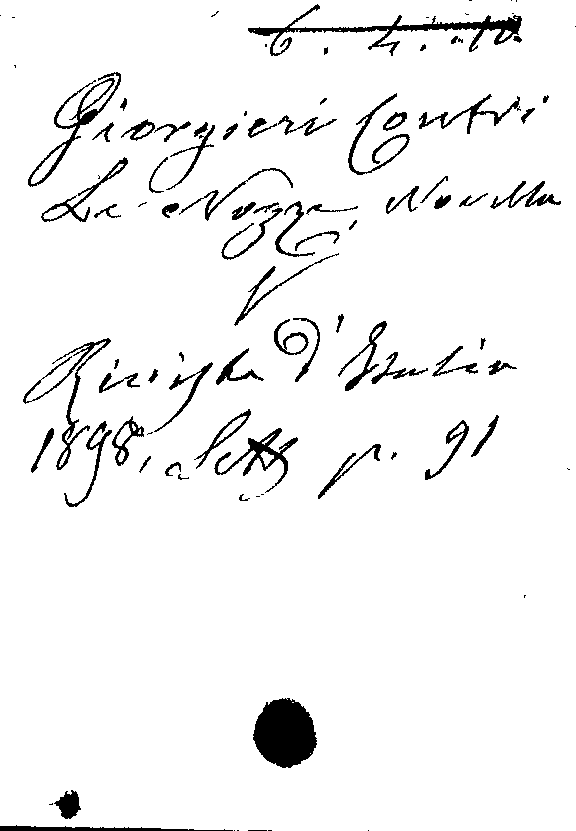 6. 4. 10.
Giorgieri Contri
Le Nozze, Novella
V
Rivista d'Italia
1898, Sett p. 91